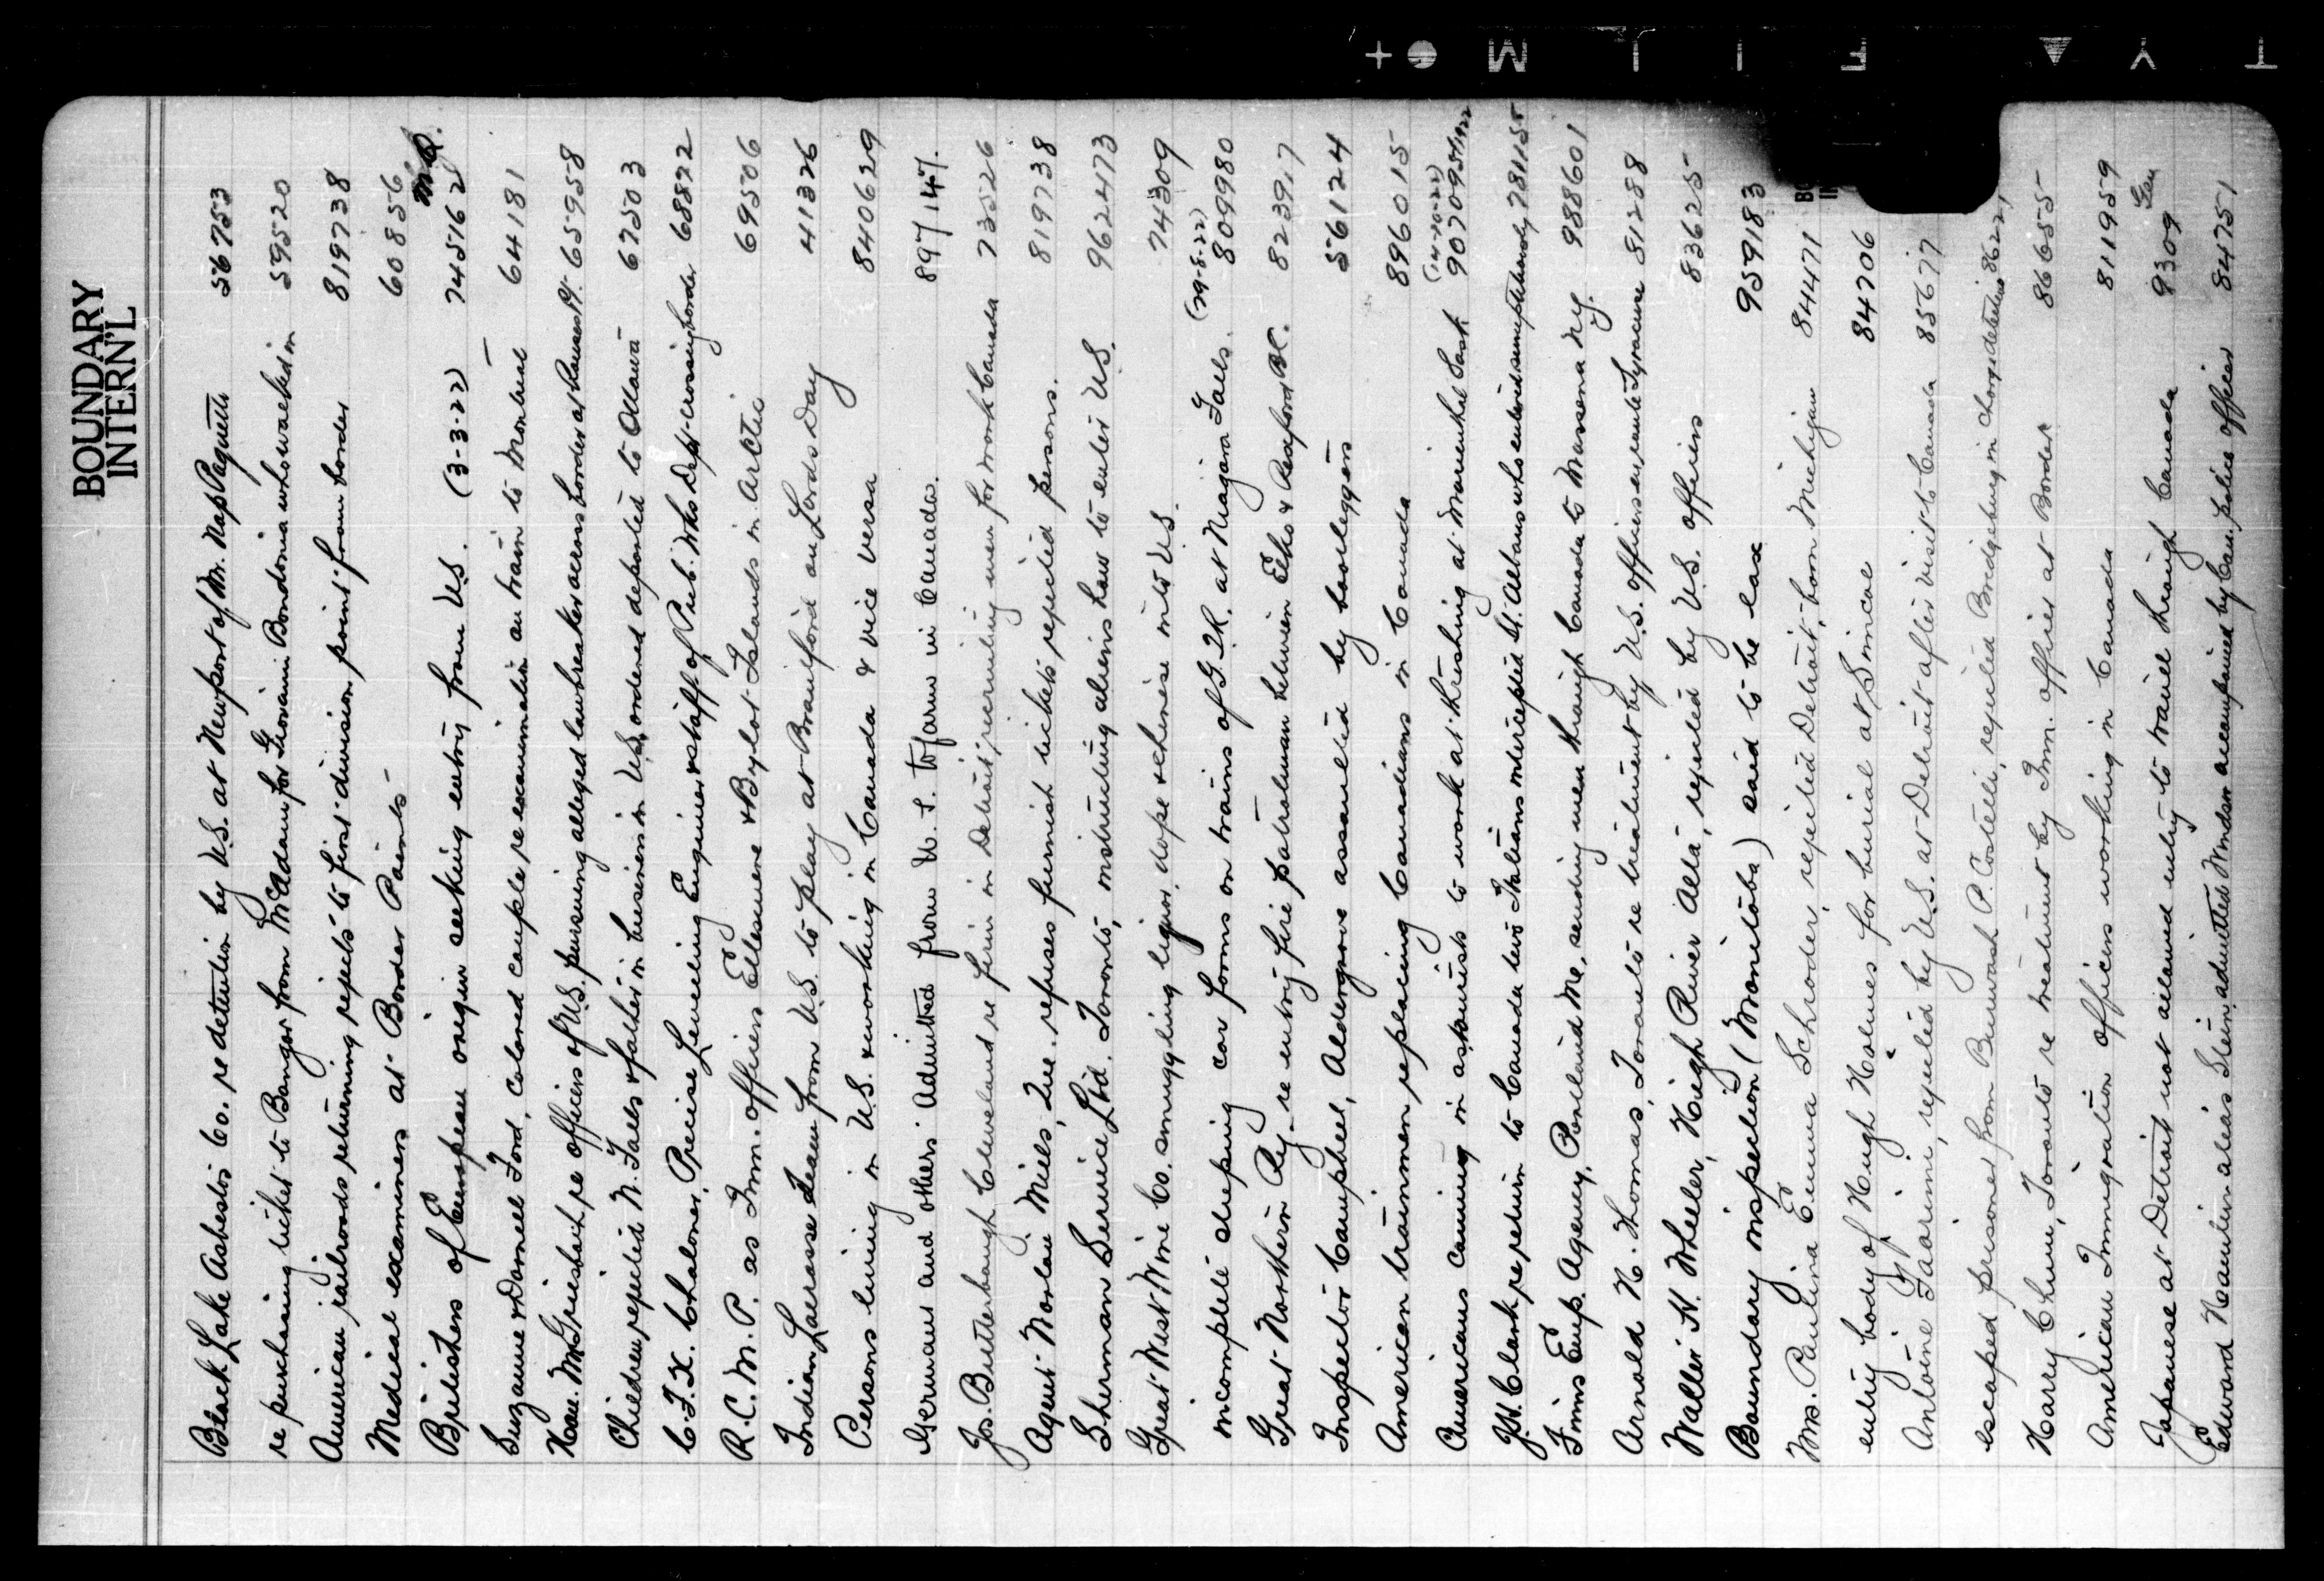 BOUNDARY
INTERN'L
Black Lake Asbestos Co. re detention by U.S. at Newport of M. Nap Paquette 56753
re purchasing ticket to Bangor from McAdam for Giovanni Bondonia who walked in 59520
American railroads returning rejects to first division point from border 819738
Medical examiners at Border Points 60856
Britishers of European origin seeking entry from U.S. (3-3-22) 745162
Suzanne & Donnell Ford, colored couple re examination on train to Montreal 64181
Hon. re officers of U.S. pursuing alleged lawbreaker across border at Rouses Pt. 65958
Children rejected N. Falls & father in business in U.S. ordered deported to Ottawa 67503
C.F.X. Chaloner, Precise Levelling Engineer & staff of Pub. Wks Dept crossing border 68822
R.C.M.P. as Imm. officers Ellesmere & Bylot Islands in Arctic 69506
Indian Lacrosse Team from U.S. to play at Brantford on Lords Day 41326
Persons living in U.S. & working in Canada & vice versa 840629
Germans and others Admitted from U.S. to farm in Canada. 897147.
Jos. Butterbaugh Cleveland re firm in Detroit, recruiting men for work Canada 73526
Agent Norlan Mills, Que. refuses furnish tickets rejected persons. 819738
Sherman Service Ltd. Toronto, instructing aliens how to enter U.S. 962473
Great West Wine Co. smuggling liquor, dope & chinese into U.S. 74309
incomplete sleeping car forms on trains of G.T.R. at Niagara Falls. (29-8-22) 809980
Great Northern Ry - re entry fire patrolman between Elko & Rexford B.C. 823917
Inspector Campbell, Aldergrove assaulted by bootleggers 56124
American trainmen replacing Canadians in Canada 896015
Americans coming in as tourists to work at threshing at Marienthal Sask (14-10-22) 907095
J.H. Clark re return to Canada two Italians intercepted St. Albans who entered surreptitiously 78115
Finns Emp. Agency, Portland Me, sending men through Canada to Massena N.Y. 988601
Arnold N. Thomas, Toronto re treatment by U.S. officers en route Syracuse 81288
Walter H. Wheeler, High River Alta, rejected by U.S. officers 83625
Boundary inspection (Manitoba) said to be lax 959183
Mrs. Paulina Emma Schroder, rejected Detroit, born Michigan 84471
entry body of Hugh Holmes for burial at Simcoe 84706
Antoine rejected by U.S. at Detroit after visit to Canada 85677
escaped prisoner from Burwash P. Costelli, rejected Bridgeburg in charge detectives 86221
Harry Chum, Toronto re treatment by Imm. officer at Border 86655
American Immigration officers working in Canada 811959
Japanese at Detroit not allowed entry to travel through Canada 9309 Gen
Edward Hamilton alias Stein, admitted Windsor accompanied by Can. police officer 84751